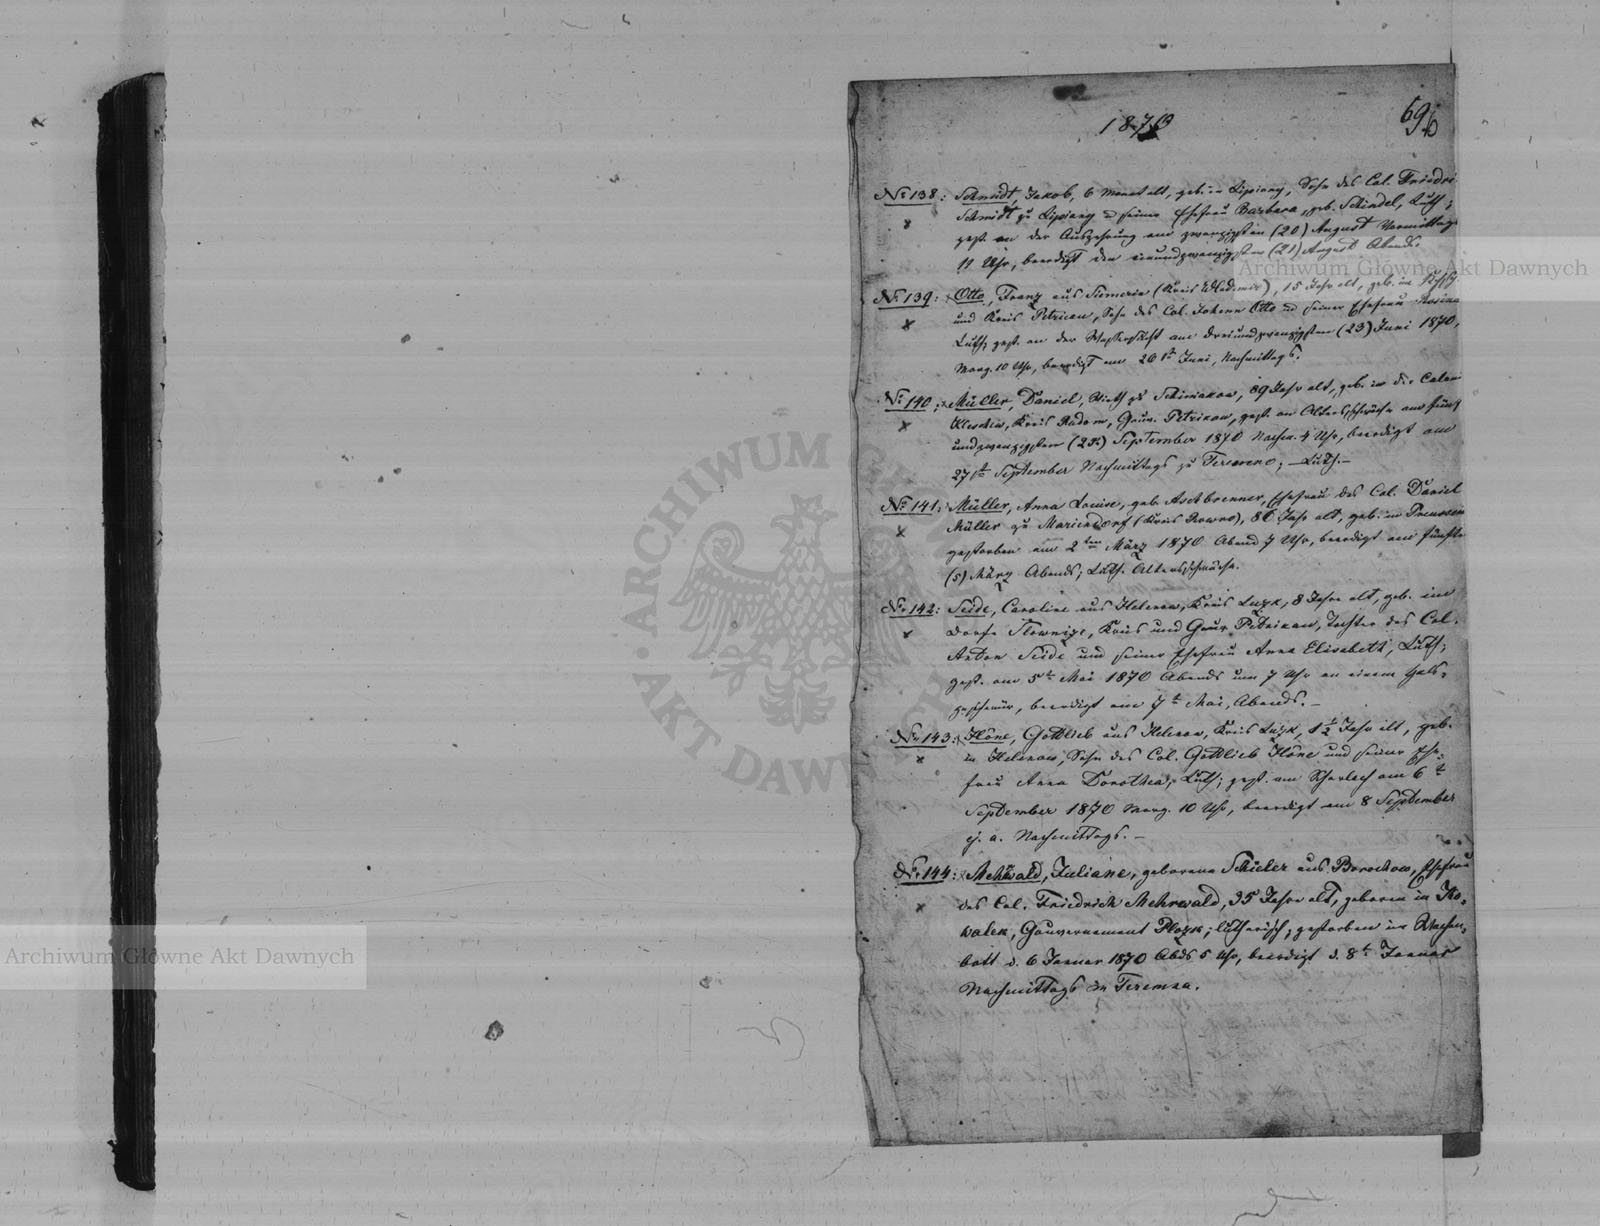 1870
696
No 138: Schmidt, Jakob, 6 Monat alt, geb. in Lipiany, Sohn des Col. Friedri
Schmidt zu Lipiany u seiner Ehefrau Barbara, geb. Schindel, Luth;
gest. an der Auszehrung am zwanzigsten (20) August Vormittags
11 Uhr, beerdigt den einundzwanzigsten (21) August Abends.
No 139: Otto, Franz aus (Kreis Wladimir), 15 Jahr alt, geb. im
und Kreis Petrikau, Sohn des Col. Johann Otto u seiner Ehefrau Rosina
Luth; gest. an der Wassersucht am dreiundzwanzigsten (23) Juni 1870,
Morg. 10 Uhr, beerdigt am 26 t Juni, Nachmittags.
No 140: Müller, Daniel, Wirth zu 89 Jahr alt, geb. in der Coloni
Kreis Radom, Gouv. Petrikau, gest. an Altersschwäche am fünf
undzwanzigsten (25) September 1870 Nachm. 4 Uhr, beerdigt am
27 t September Nachmittags zu Luth.
No 141: Müller, Anna Louise, geb. Aschbrenner, Ehefrau des Col. Daniel
Müller zu Mariendorf (Kreis Rowno), 86 Jahr alt, geb. in Preussen
gestorben am 2 ten März 1870 Abend 7 Uhr, beerdigt am fünften
(5) März Abends; Luth. Altersschwäche.
No 142: Seide, Caroline aus Helenow, Kreis Luzk, 8 Jahre alt, geb. im
Dorfe Kreis und Gouv. Petrikau, Tochter des Col.
Anton Seide und seiner Ehefrau Anna Elisabeth, Luth;
gest. am 5 t Mai 1870 Abends um 7 Uhr an einem Hals-
geschwür, beerdigt am 7 t Mai, Abends. –
No 143: Höne, Gottlieb aus Helenow, Kreis Luzk, 1 1/2 Jahr alt, geb.
in Helenow, Sohn des Col. Gottlieb Höne und seiner Ehe-
frau Anna Dorothea; Luth; gest. am Scharlach am 6 t
September 1870 Morg. 10 Uhr, beerdigt am 8 September
ej. a. Nachmittags. –
No 144: Mehwald, Juliane, geborene Schüler aus Borochow, Ehefrau
des Col. Friedrich Mehrwald, 35 Jahre alt, geboren in Ko-
walek, Gouvernement Plozk; lutherisch; gestorben im Wochen-
bett d. 6 Januar 1870 Abds 5 Uhr, beerdigt d. 8 t Januar
Nachmittags in Teremna.
Archiwum Główne Akt Dawnych
Archiwum Główne Akt Dawnych
ARCHIWUM GŁÓWNE AKT DAWNYCH